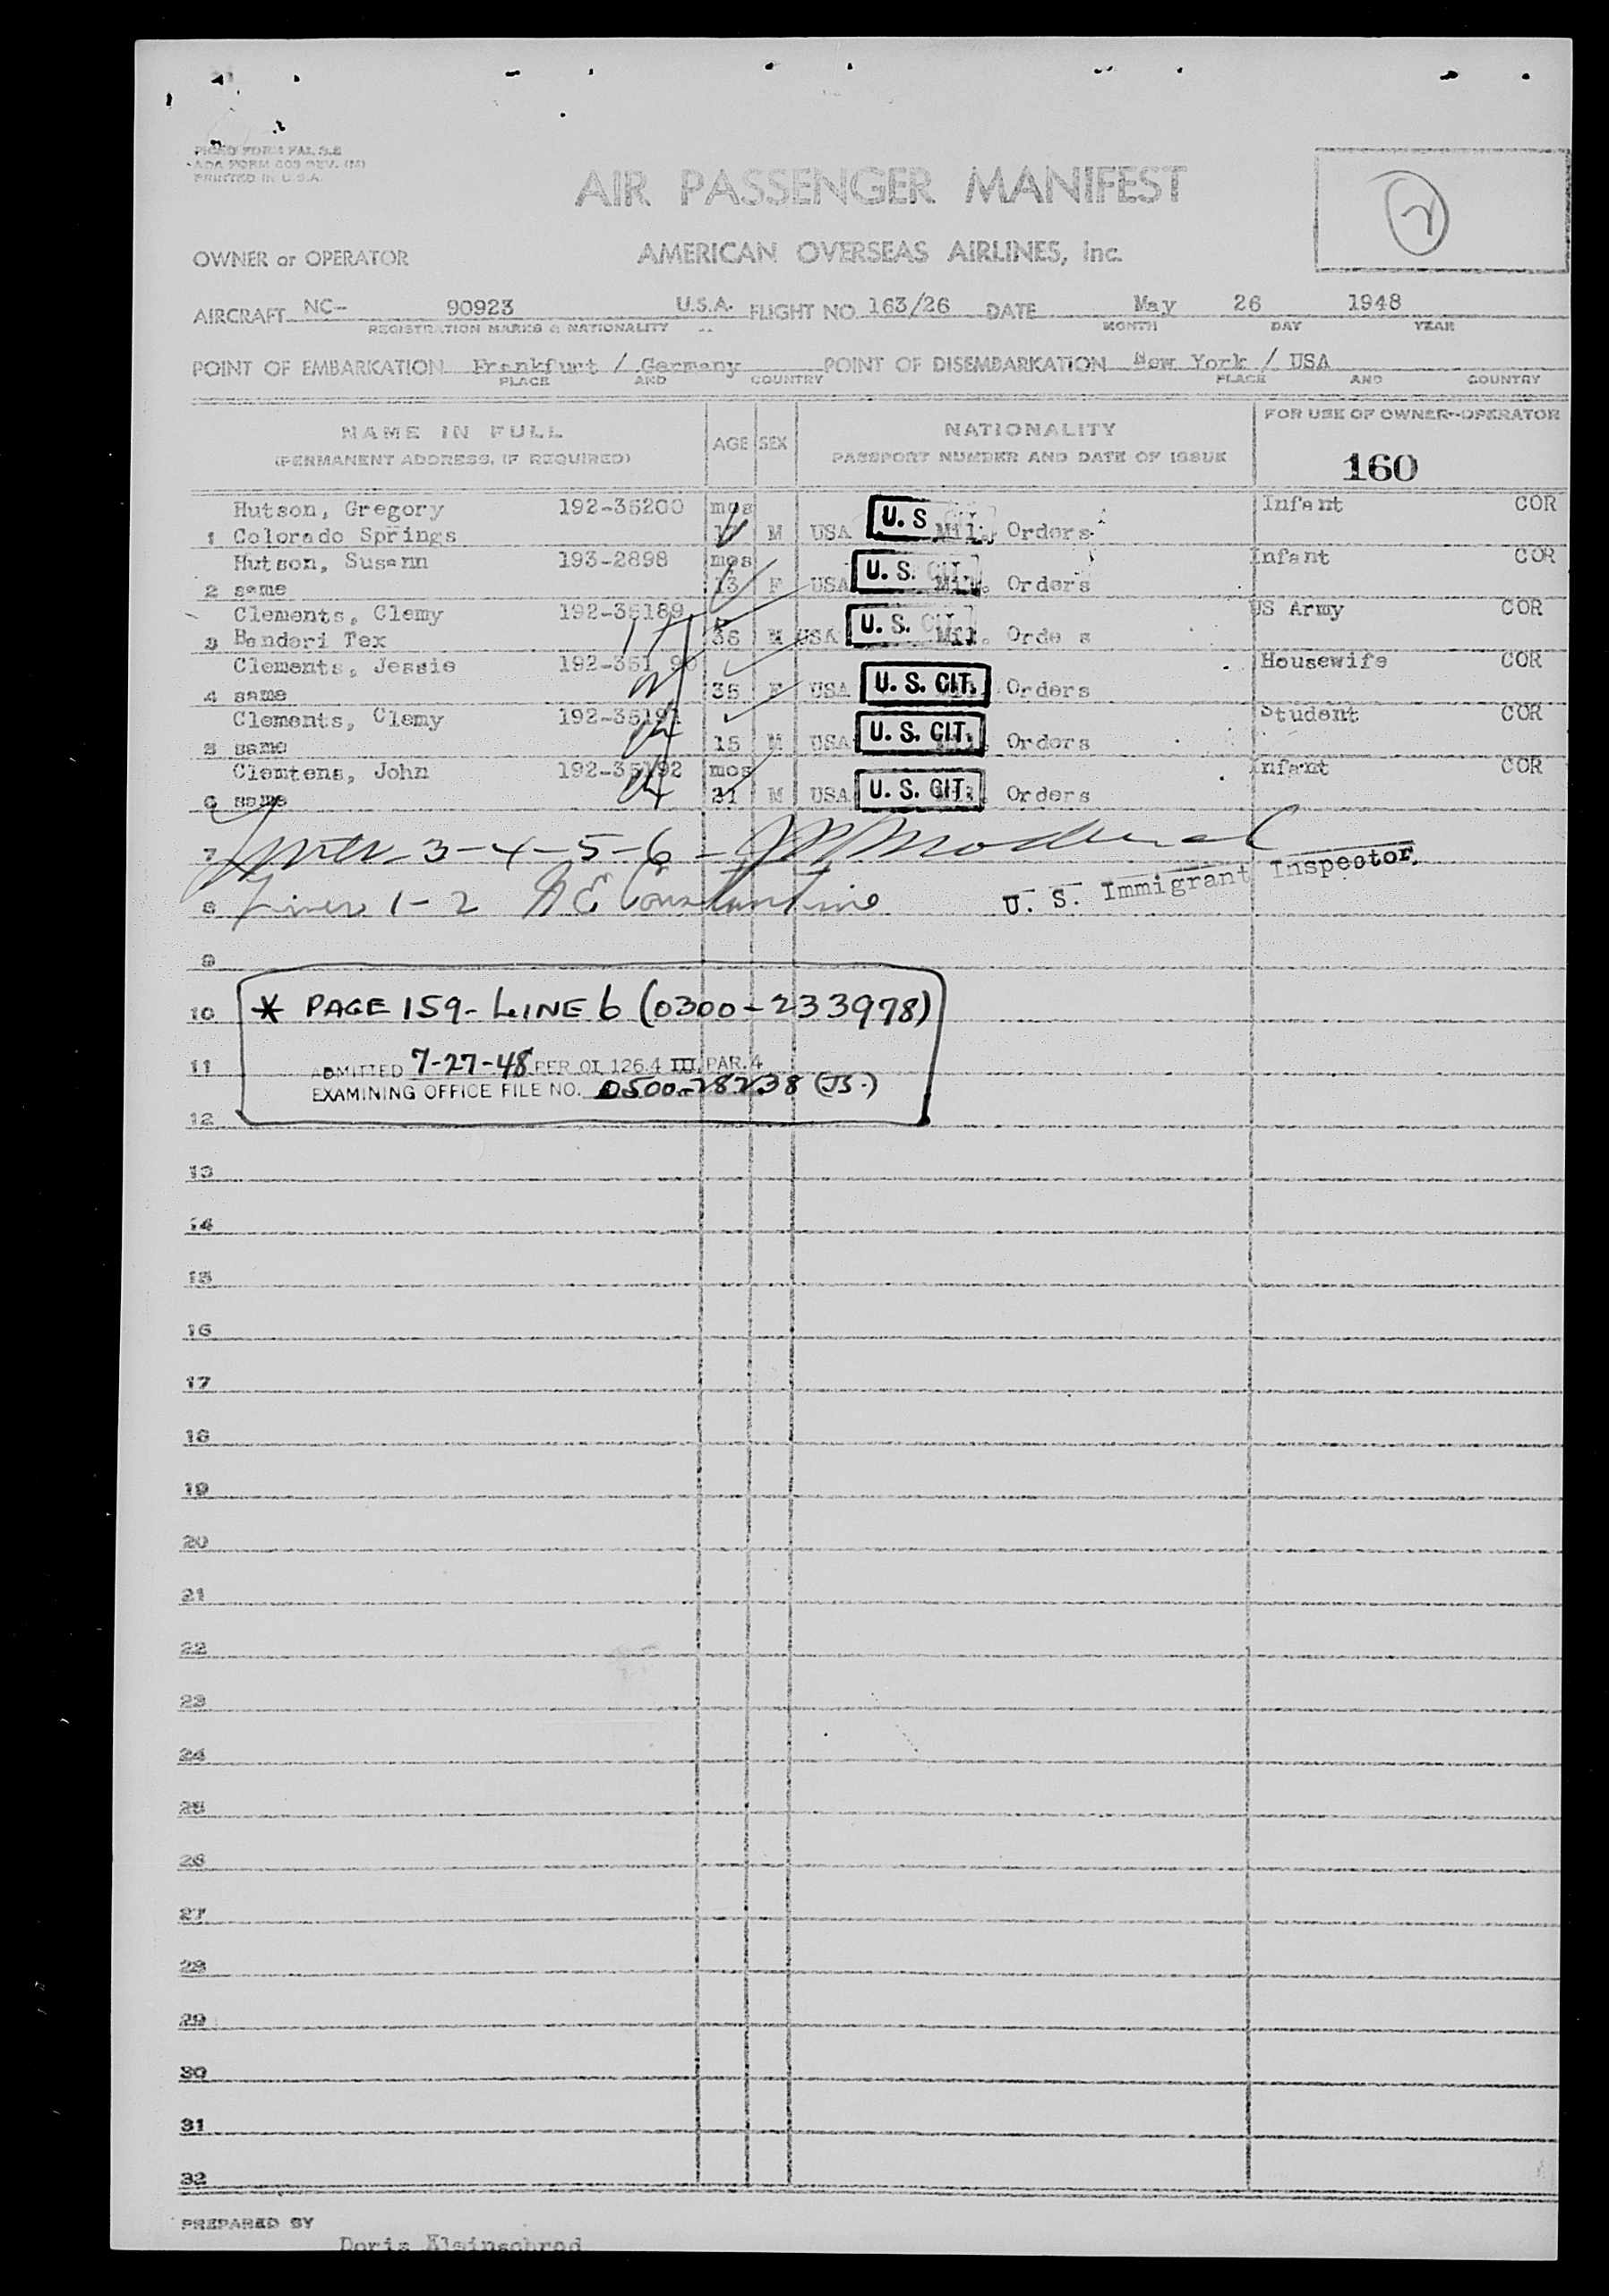 PRINTED IN U.S.A.
AIR PASSENGER MANIFEST
OWNER or OPERATOR AMERICAN OVERSEAS AIRLINES, Inc.
AIRCRAFT NC- 90923 U.S.A. FLIGHT NO. 163/26 DATE May 26 1948
REGISTRATION MARKS & NATIONALITY MONTH DAY YEAR
POINT OF EMBARKATION Frankfurt / Germany POINT OF DISEMBARKATION New York / USA
PLACE AND COUNTRY PLACE AND COUNTRY
NAME IN FULL AGE SEX NATIONALITY FOR USE OF OWNER-OPERATOR
(PERMANENT ADDRESS, IF REQUIRED) PASSPORT NUMBER AND DATE OF ISSUE 160
Hutson, Gregory 192-35200 mos Infant COR
1 Colorado Springs M USA U. S Mil. Orders
Hutson, Susann 193-2898 mos Infant COR
2 same 13 F USA U. S. CIT. Mil. Orders
Clements, Clemy 192-35189 US Army COR
3 Banderi Tex 36 M USA U. S. CIT. Mil. Orde s
Clements, Jessie 192-351 90 Housewife COR
4 same 35 F USA U. S. CIT. Orders
Clements, Clemy 192-35191 Student COR
5 same 15 M USA U. S. CIT. Orders
Clemtens, John 192-35192 mos Infant COR
6 same 21 M USA U. S. CIT. Orders
7 3-4-5-6-
U. S. Immigrant Inspector.
8 Lines 1-2 Constantine
9
10 * PAGE 159- LINE 6 (0300-233978)
11 ADMITTED 7-27-48 PER OI 126.4 III, PAR. 4
EXAMINING OFFICE FILE NO. 0500-28238 (JS.)
12
13
14
15
16
17
18
19
20
21
22
23
24
25
26
27
28
29
30
31
32
PREPARED BY
Doris Kleinschrod